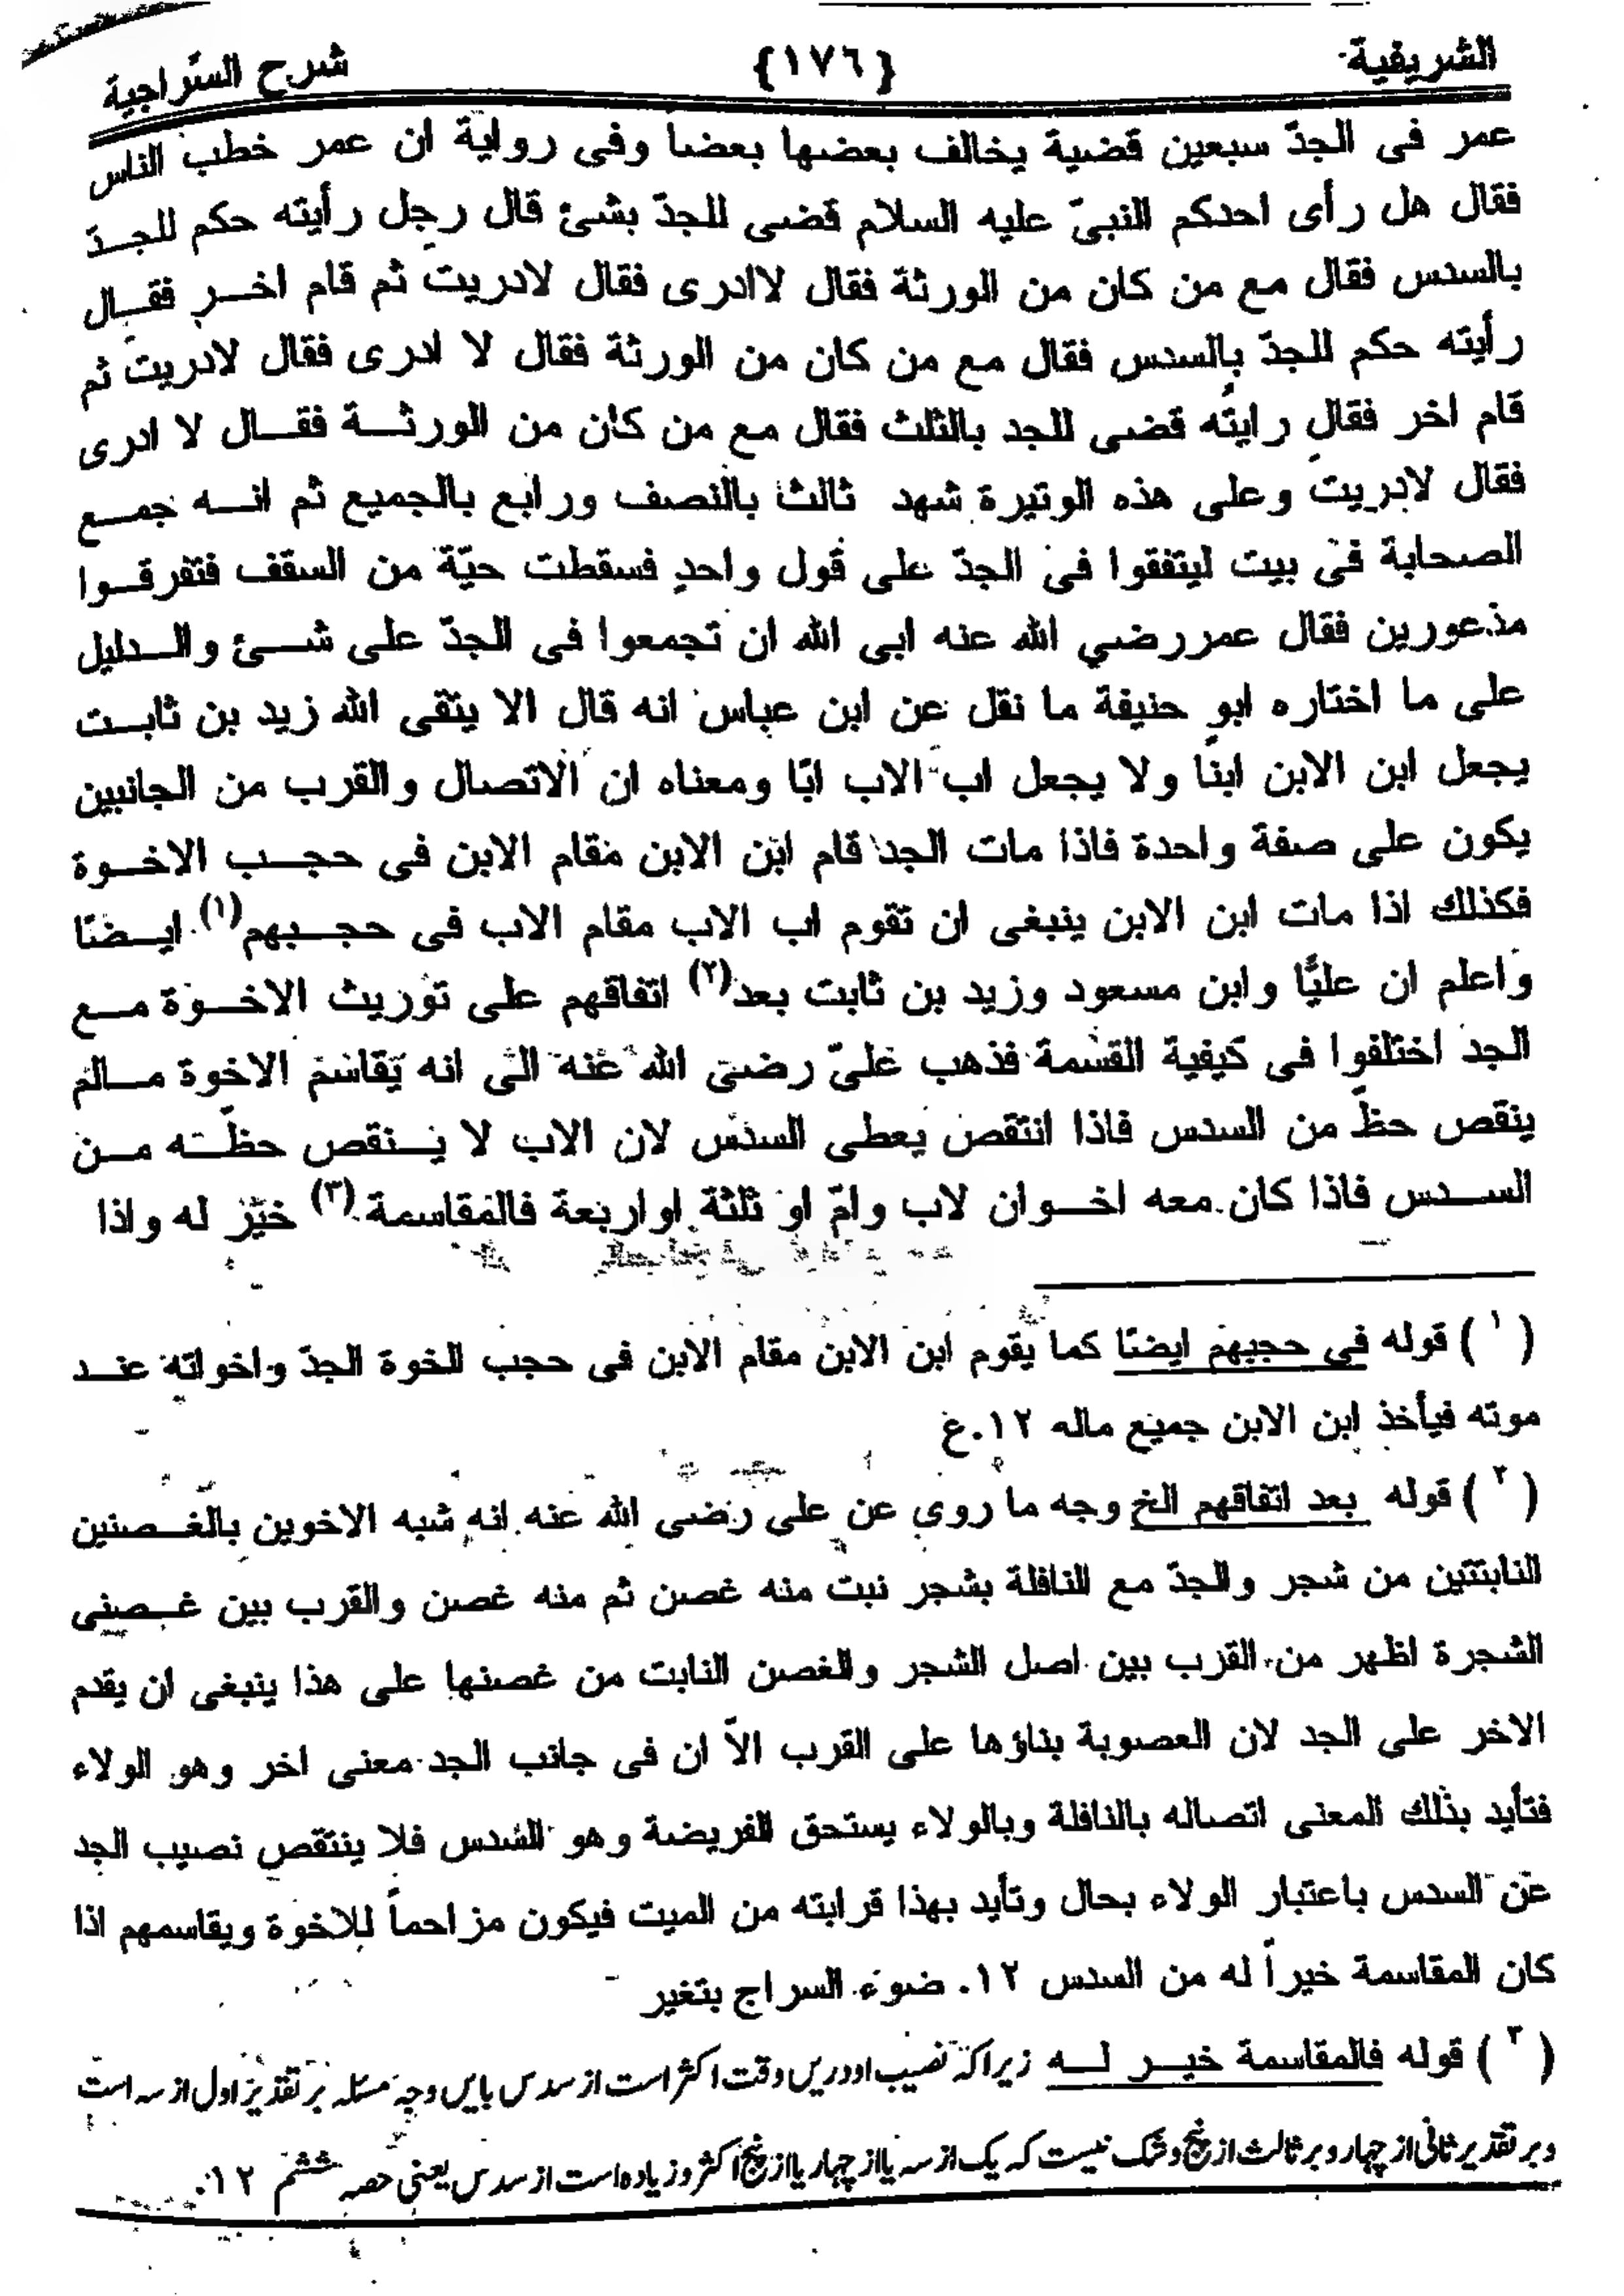 الشريفية {١٧٦} شرح السّراجية
عمر فى الجدّ سبعين قضية يخالف بعضها بعضاً وفى رواية ان عمر خطب الناس
فقال هل رأى احدكم النبىّ عليه السلام قضى للجدّ بشئ قال رجل رأيته حكم للجـدّ
بالسدس فقال مع من كان من الورثة فقال لاادرى فقال لادريت ثم قام اخـر فقـال
رأيته حكم للجدّ بالسدس فقال مع من كان من الورثة فقال لا ادرى فقال لادريت ثم
قام اخر فقال رايته قضى للجد بالثلث فقال مع من كان من الورثـة فقـال لا ادرى
فقال لادريت وعلى هذه الوتيرة شهد ثالث بالنصف ورابع بالجميع ثم انـه جمـع
الصحابة فى بيت ليتفقوا فى الجدّ على قول واحدٍ فسقطت حيّة من السقف فتفرقـوا
مذعورين فقال عمررضي الله عنه ابى الله ان تجمعوا فى الجدّ على شـئ والـدليل
على ما اختاره ابو حنيفة ما نقل عن ابن عباس انه قال الا يتقى الله زيد بن ثابـت
يجعل ابن الابن ابنًا ولا يجعل اب الاب ابًا ومعناه ان الاتصال والقرب من الجانبين
يكون على صفة واحدة فاذا مات الجد قام ابن الابن مقام الابن فى حجـب الاخـوة
فكذلك اذا مات ابن الابن ينبغى ان تقوم اب الاب مقام الاب فى حجـبهم(١) ايـضًا
واعلم ان عليًّا وابن مسعود وزيد بن ثابت بعد(٢) اتفاقهم على توريث الاخـوة مـع
الجد اختلفوا فى كيفية القسمة فذهب علىّ رضى الله عنه الى انه يقاسم الاخوة مـالم
ينقص حظّ من السدس فاذا انتقص يعطى السدس لان الاب لا يـنقص حظّـه مـن
السـدس فاذا كان معه اخـوان لاب وامّ او ثلثة او اربعة فالمقاسمة(٣) خيّر له واذا
(١) قوله فى حجبهم ايضًا كما يقوم ابن الابن مقام الابن فى حجب للخوة الجدّ واخواته عنـد
موته فيأخذ ابن الابن جميع ماله ١٢.غ
(٢) قوله بعد اتفاقهم الخ وجه ما روى عن على رضى الله عنه انه شبه الاخوين بالغـصنين
النابتتين من شجر والجدّ مع النافلة بشجر نبت منه غصن ثم منه غصن والقرب بين غـصنى
الشجرة اظهر من القرب بين اصل الشجر والغصن النابت من غصنها على هذا ينبغى ان يقدم
الاخر على الجد لان العصوبة بناؤها على القرب الاّ ان فى جانب الجد معنى اخر وهو الولاء
فتأيد بذلك المعنى اتصاله بالنافلة وبالولاء يستحق الفريضة وهو السدس فلا ينتقص نصيب الجد
عن السدس باعتبار الولاء بحال وتأيد بهذا قرابته من الميت فيكون مزاحماً للاخوة ويقاسمهم اذا
كان المقاسمة خيراً له من السدس ١٢. ضوء السراج بتغير
(٣) قوله فالمقاسمة خيـر لـه زیراکہ نصیب اودریں وقت اکثراست از سدس بایں وجہ مسئلہ بر تقدیر اول از سہ است
وبر تقدیر ثانی از چہار وبر ثالث از پنج وشک نیست کہ یک از سہ یا از چہار یا از پنج اکثر وزیادہ است از سدس یعنی حصہ ششم ١٢.